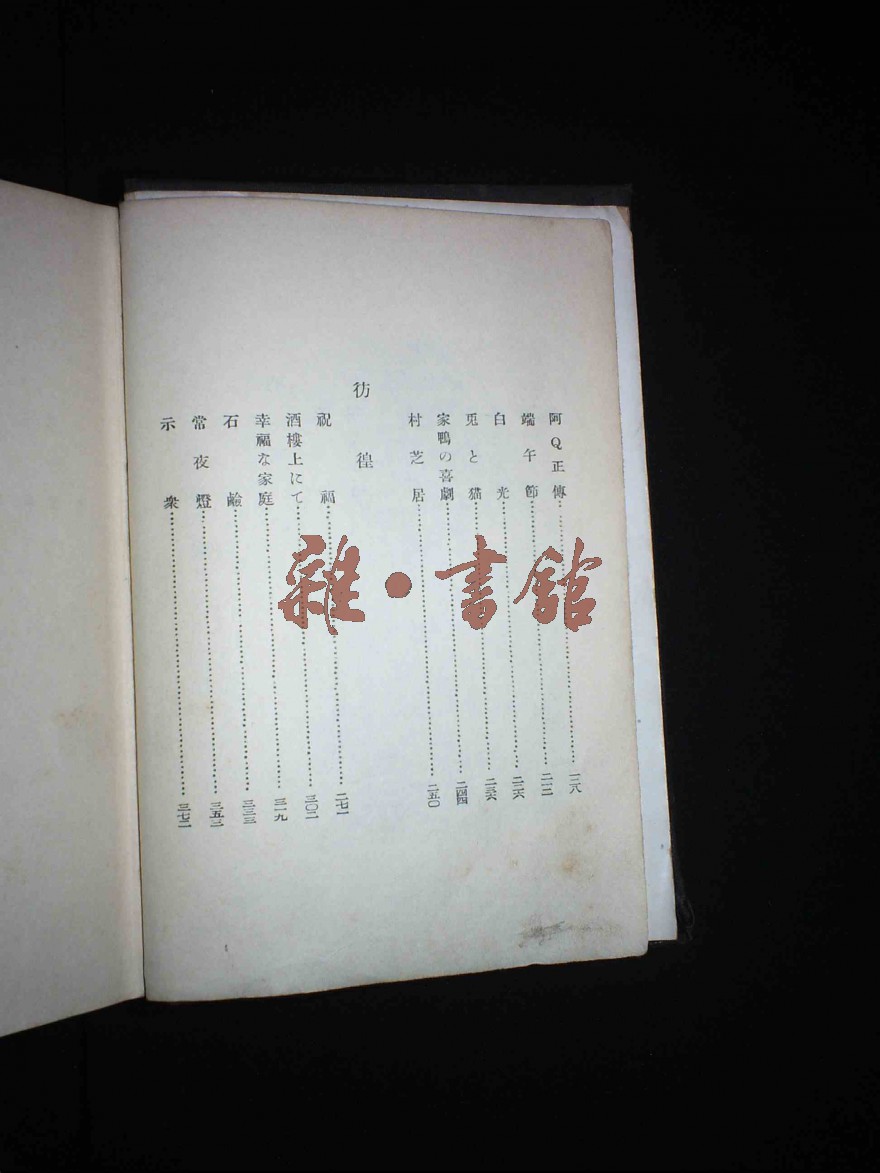 阿Q正傳……一一八
端午節……二一二
白光……二二六
兎と猫……二三六
家鴨の喜劇……二四四
村芝居……二五〇
彷徨
祝福……二七一
酒樓上にて……三〇二
幸福な家庭……三一九
石鹼……三三三
常夜燈……三五三
示衆……三七二
雜・書館